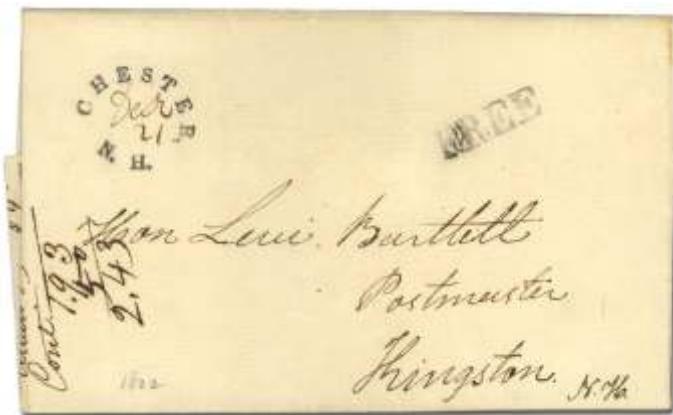 CHESTER
N. H.
21
FREE
Hon Levi Bartlett
Postmaster
Kingston. N. H.
Cont
1.93
50
2.43
1822